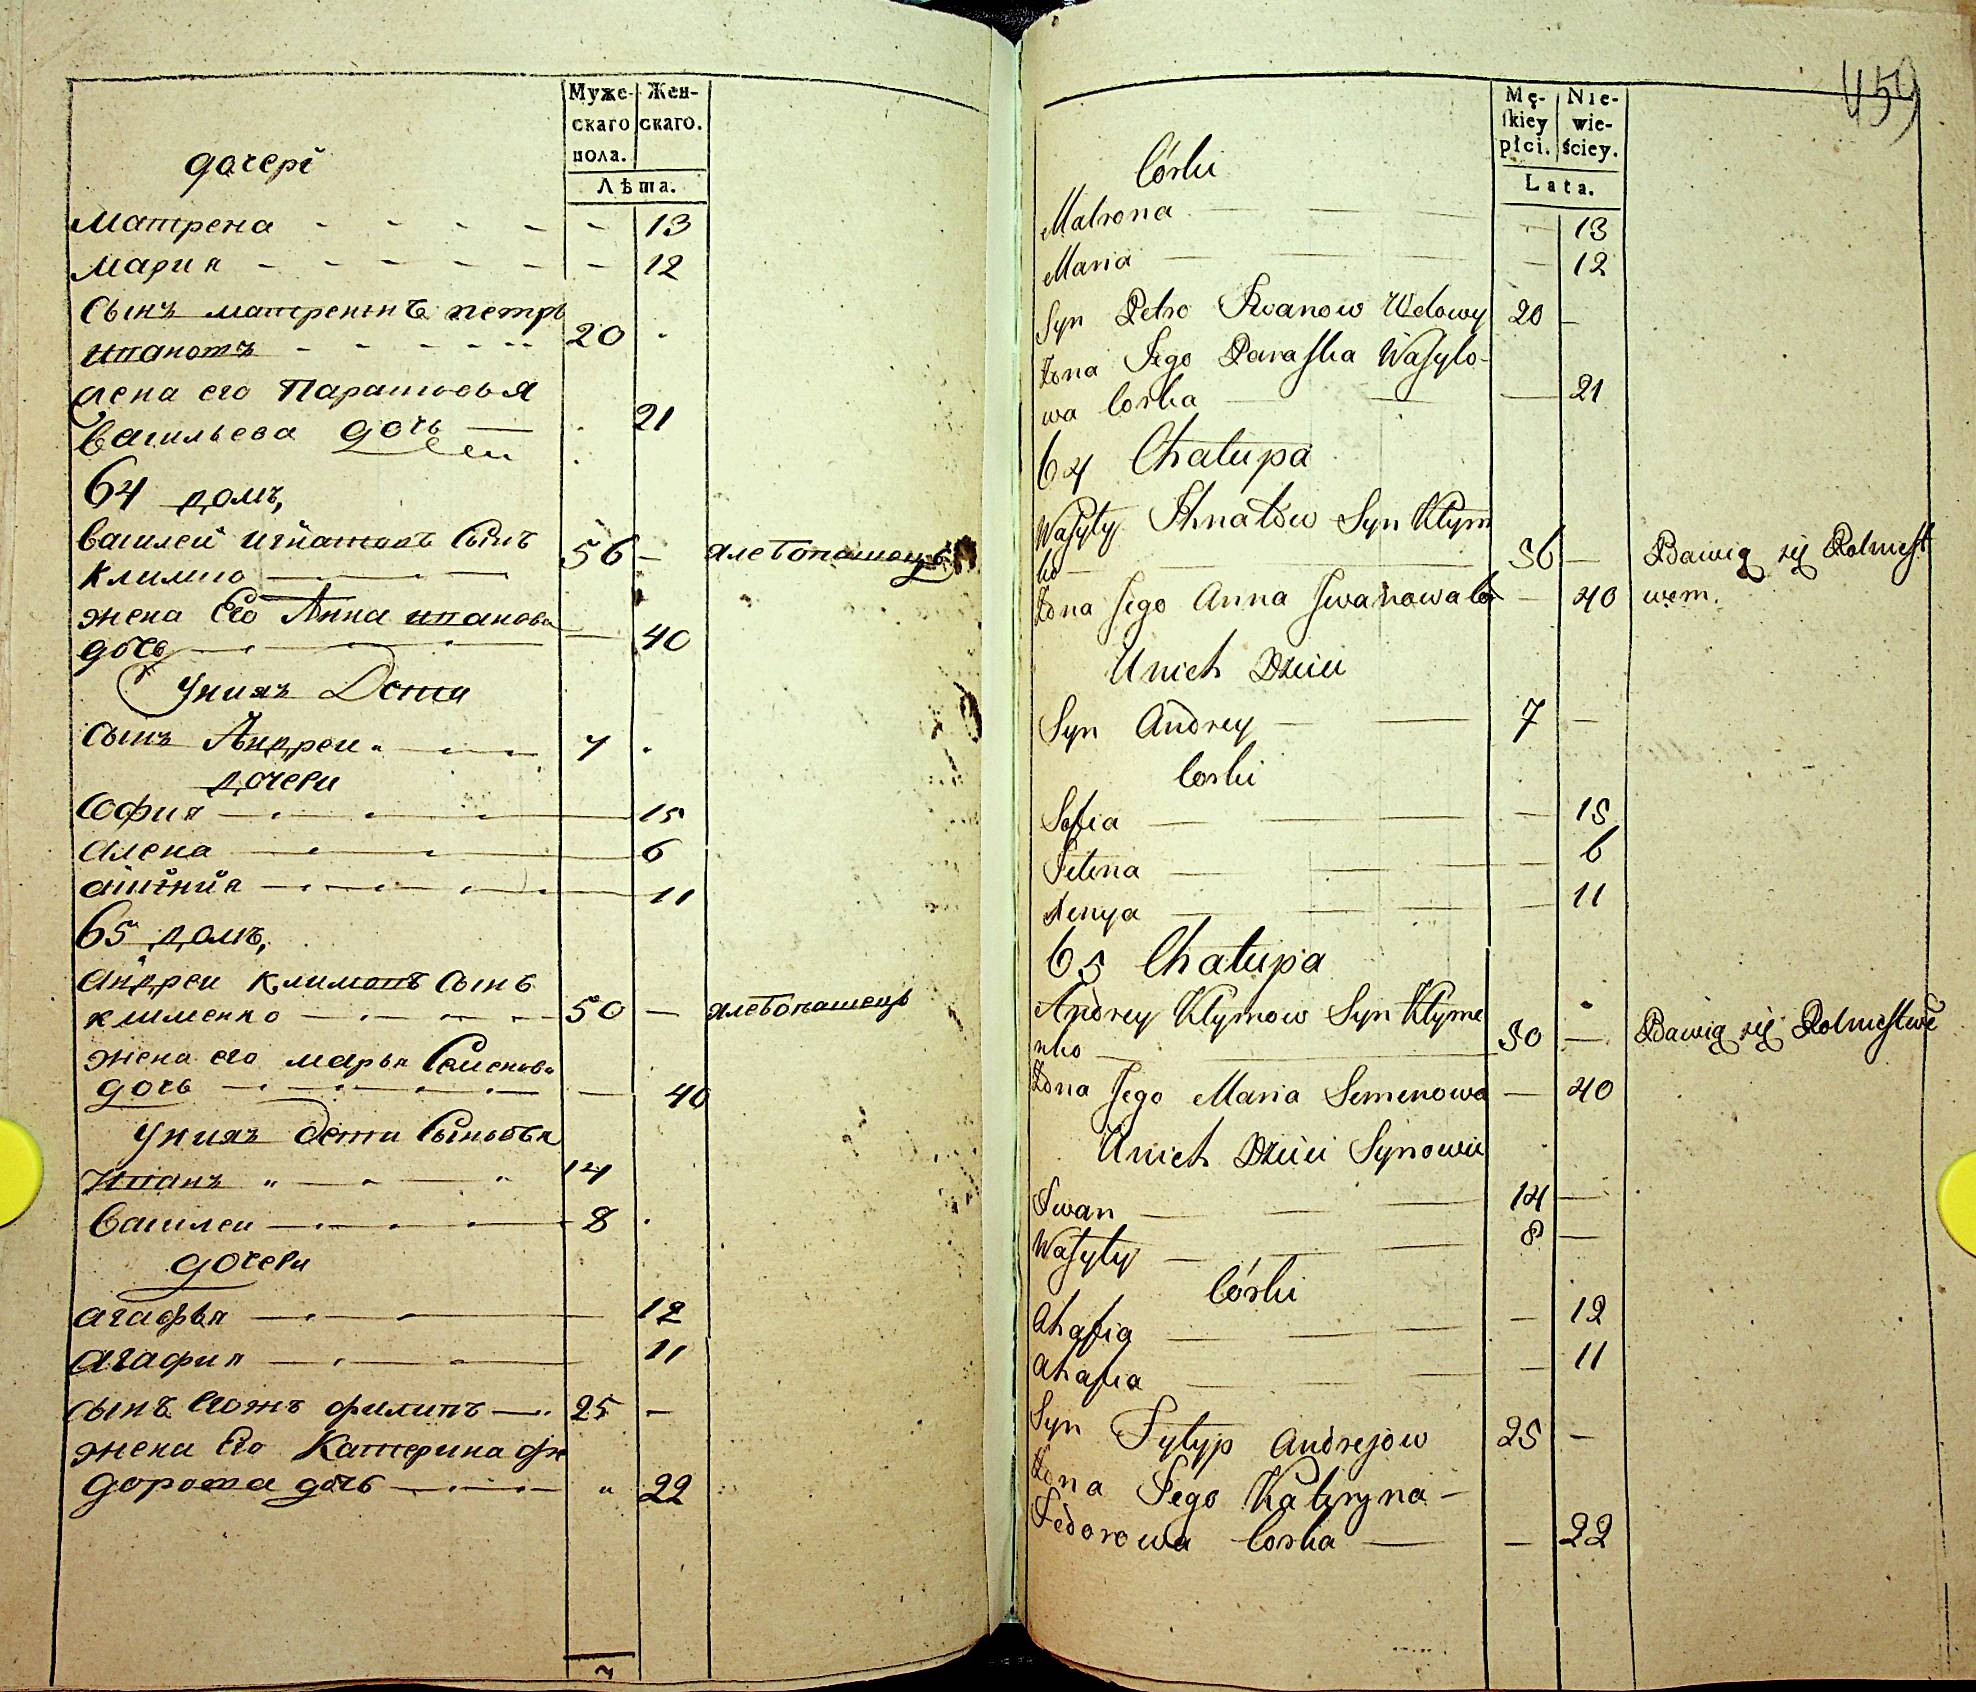 Муже-
скаго
пола.
Жен-
скаго.
Лѣта.
дочері
Матрена 13
Мария 12
Сынъ матрениnъ петръ
ивановъ 20
жена его Парасковья
Васильева дочь 21
64 домъ,
Василей игнатовъ Сынъ
Клименко 56 хлебопашецъ
жена Его Анна иванова
дочь 40
Унихъ Дети
Сынъ Андреи 7
дочери
София 15
Алена 6
65 домъ,
андреи климовъ Сынъ
клименко 50 хлебопашецъ
жена его марья Семенова
дочь 40
Унихъ дети Сыновья
Иванъ 14
Василеи 8
дочери
агафья 12
агафия 11
сынъ Егожъ филипъ 25
жена Его Катерина фе
дорова дочь 22
459
Mę-
ſkiey
płci.
Nie-
wie-
ściey.
Lata.
Córki
Matrona 13
Maria 12
Syn Petro Iwanow Wdowy 20
Żona Jego Paraſka Waſylo-
wa Corka 21
64 Chałupa
Waſyly Ihnatów Syn Klym
ko 56 Bawią się Rolnicſt
wem.
Żona Jego Anna Iwanowa Cór 40
Unich Dzieci
Syn Andrey 7
Corki
Sofia 15
Jelena 6
Xenya 11
65 Chałupa
Andrey Klymow Syn Klyme
nko 50 Bawią się Rolnicſtwe
Żona Jego Maria Semenowa 40
Unich Dzieci Synowie
Iwan 14
Waſyly 8
Córki
Ahafia 12
Ahafia 11
Syn Fylyp Andrejów 25
Żona Jego Kateryna
Fedorowa Corka 22